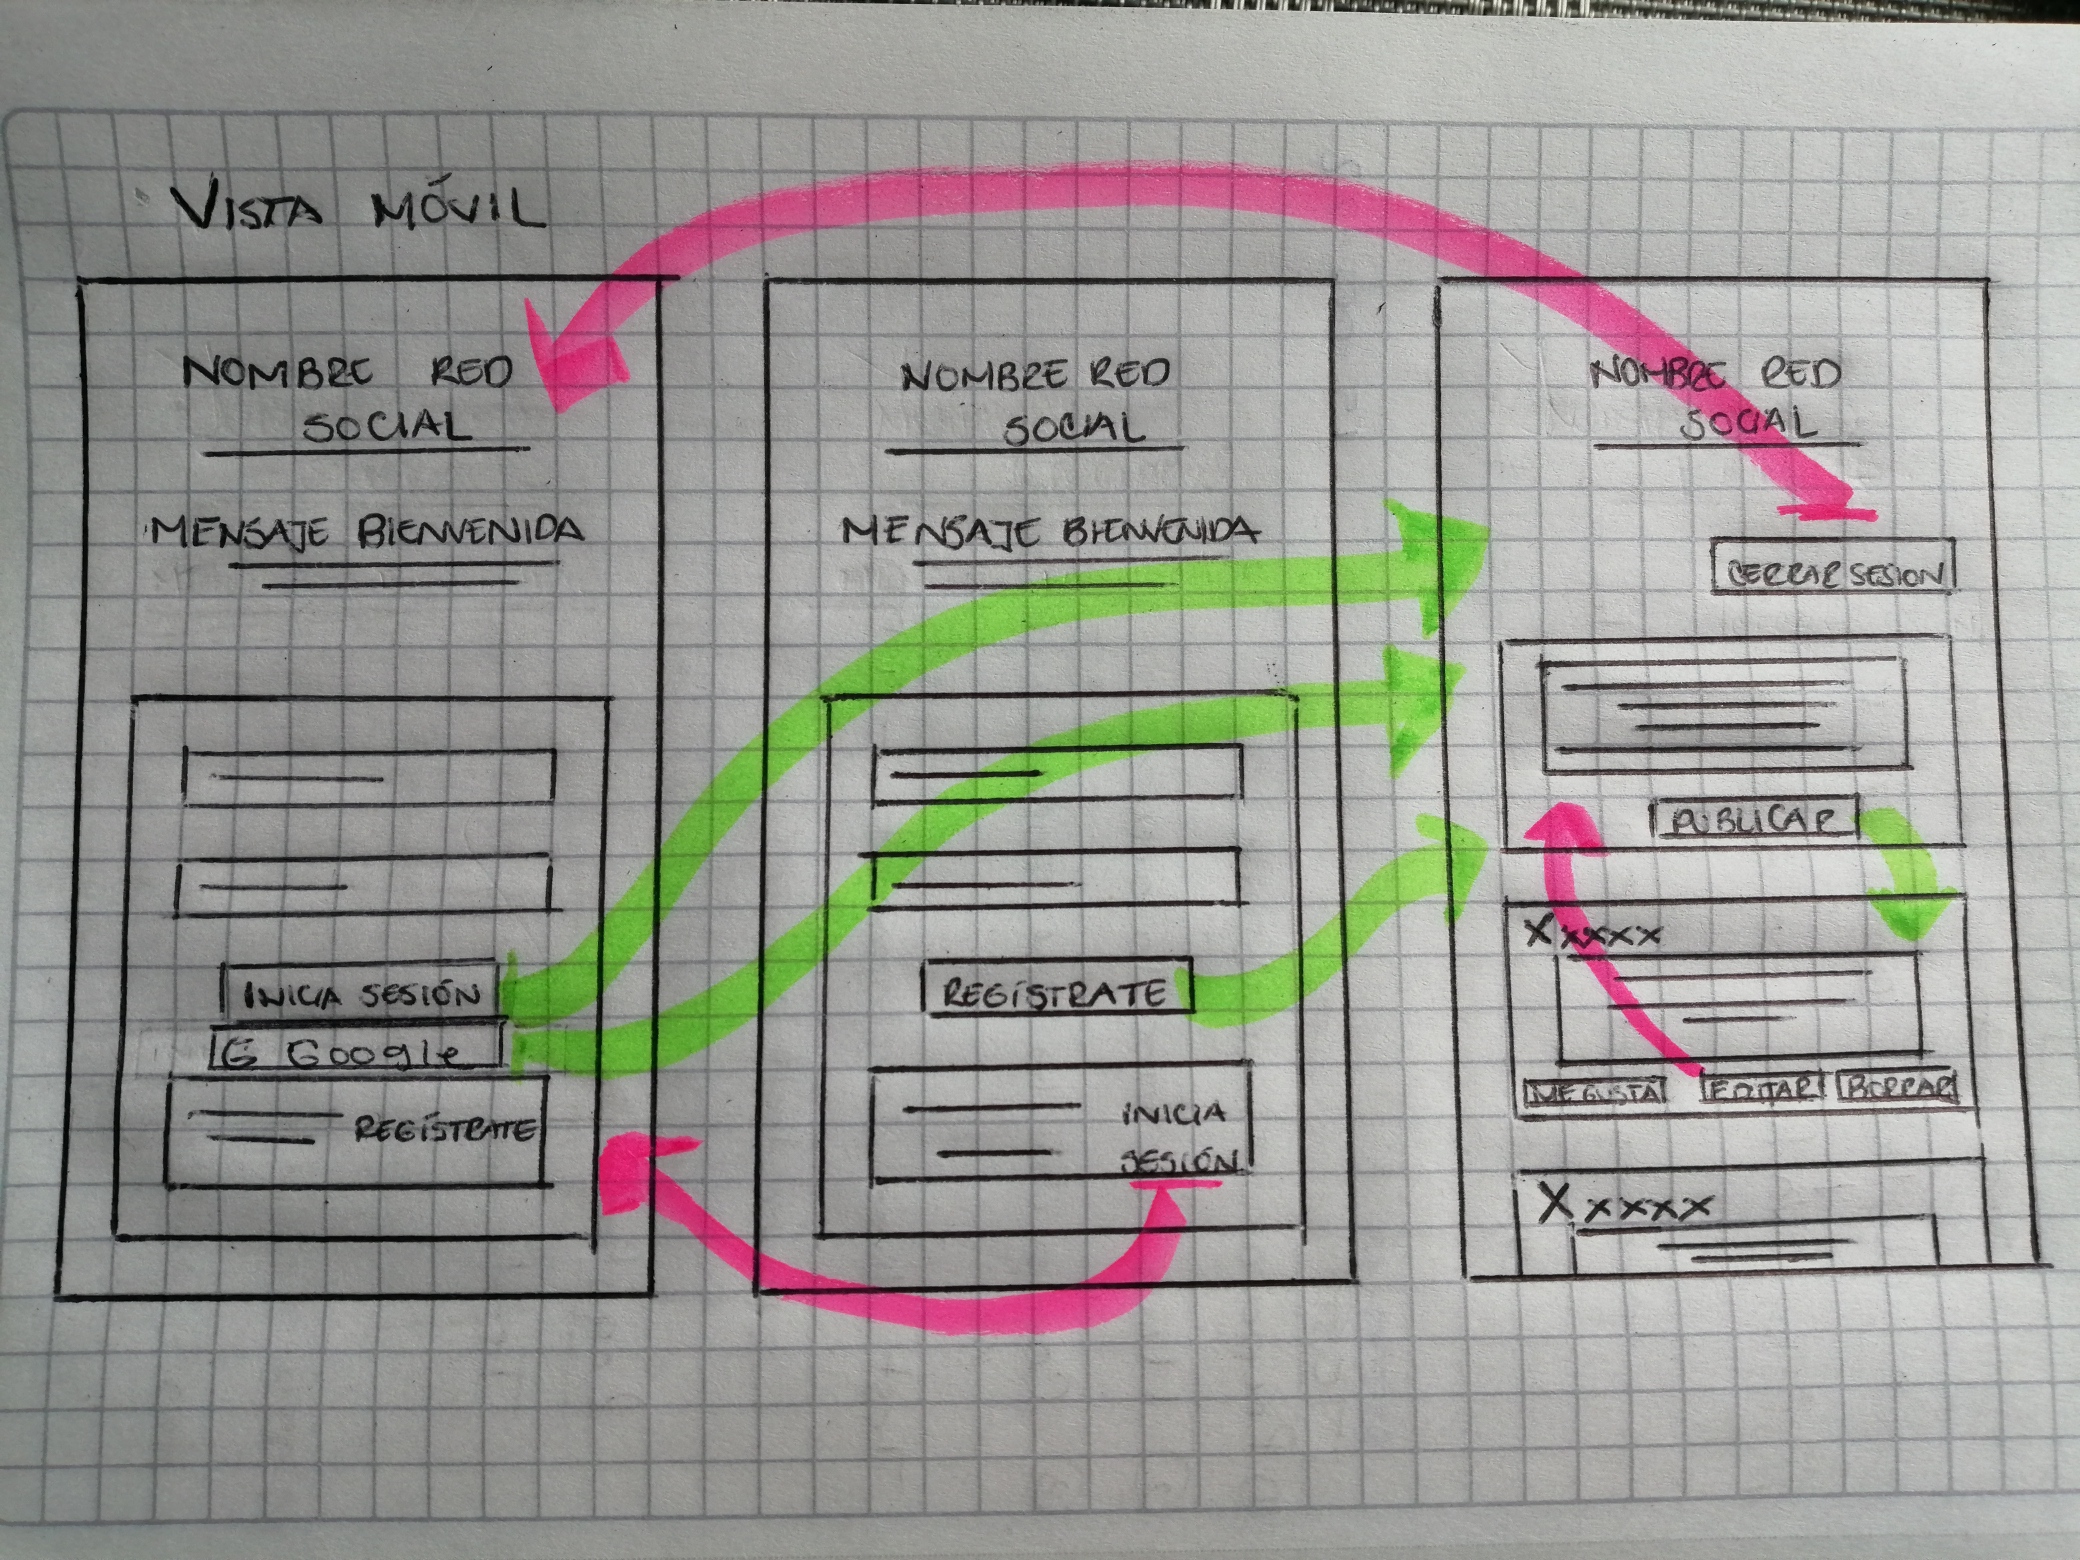 VISTA MÓVIL
NOMBRE RED
SOCIAL
MENSAJE BIENVENIDA
INICIA SESIÓN
G Google
REGÍSTRATE
NOMBRE RED
SOCIAL
MENSAJE BIENVENIDA
REGÍSTRATE
INICIA
SESIÓN
NOMBRE RED
SOCIAL
CERRAR SESION
PUBLICAR
Xxxxxx
ME GUSTA EDITAR BORRAR
Xxxxxx